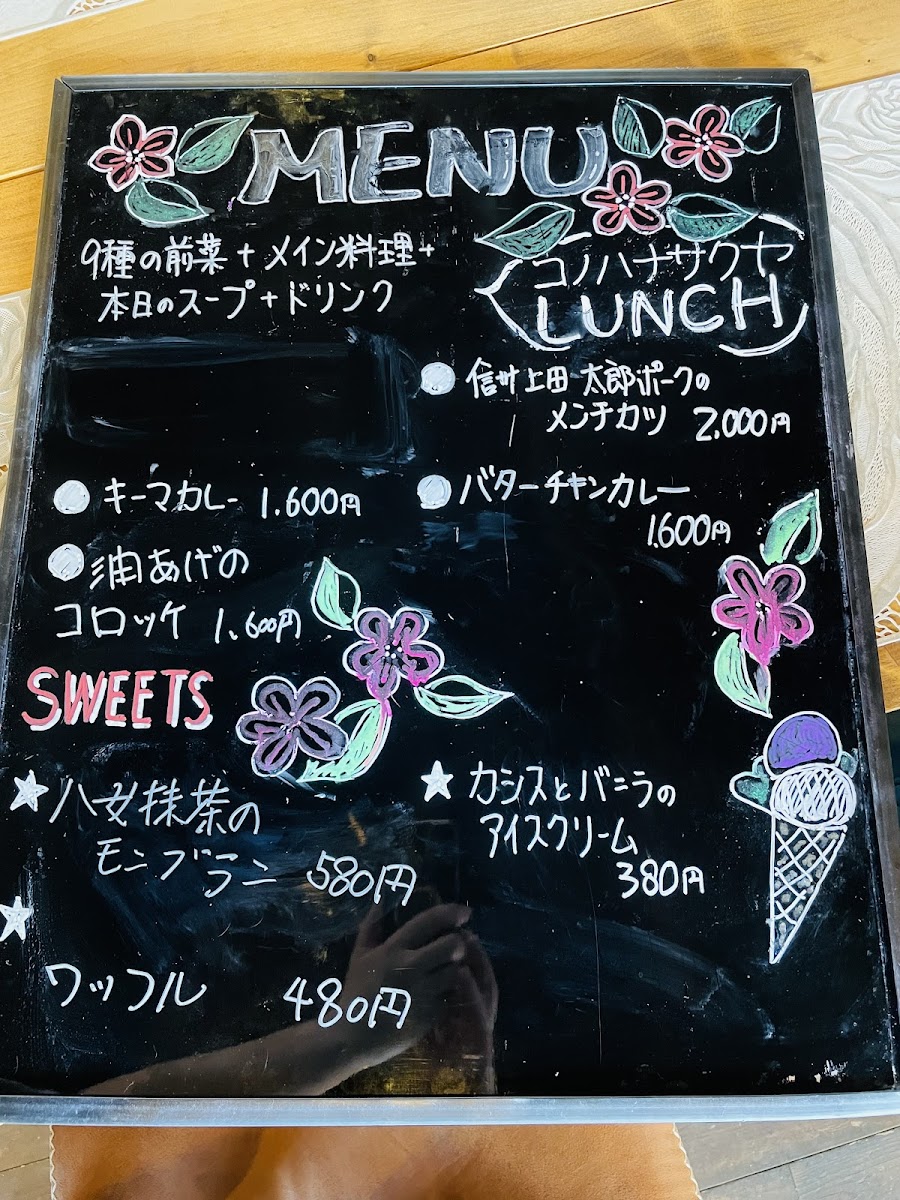 MENU
コノハナサクヤ
LUNCH
9種の前菜+メイン料理+
本日のスープ+ドリンク
信州上田 太郎ポークの
メンチカツ 2.000円
キーマカレー 1.600円
バターチキンカレー
1.600円
油あげの
コロッケ 1.600円
SWEETS
八女抹茶の
モンブラン 580円
カシスとバニラの
アイスクリーム
380円
ワッフル 480円